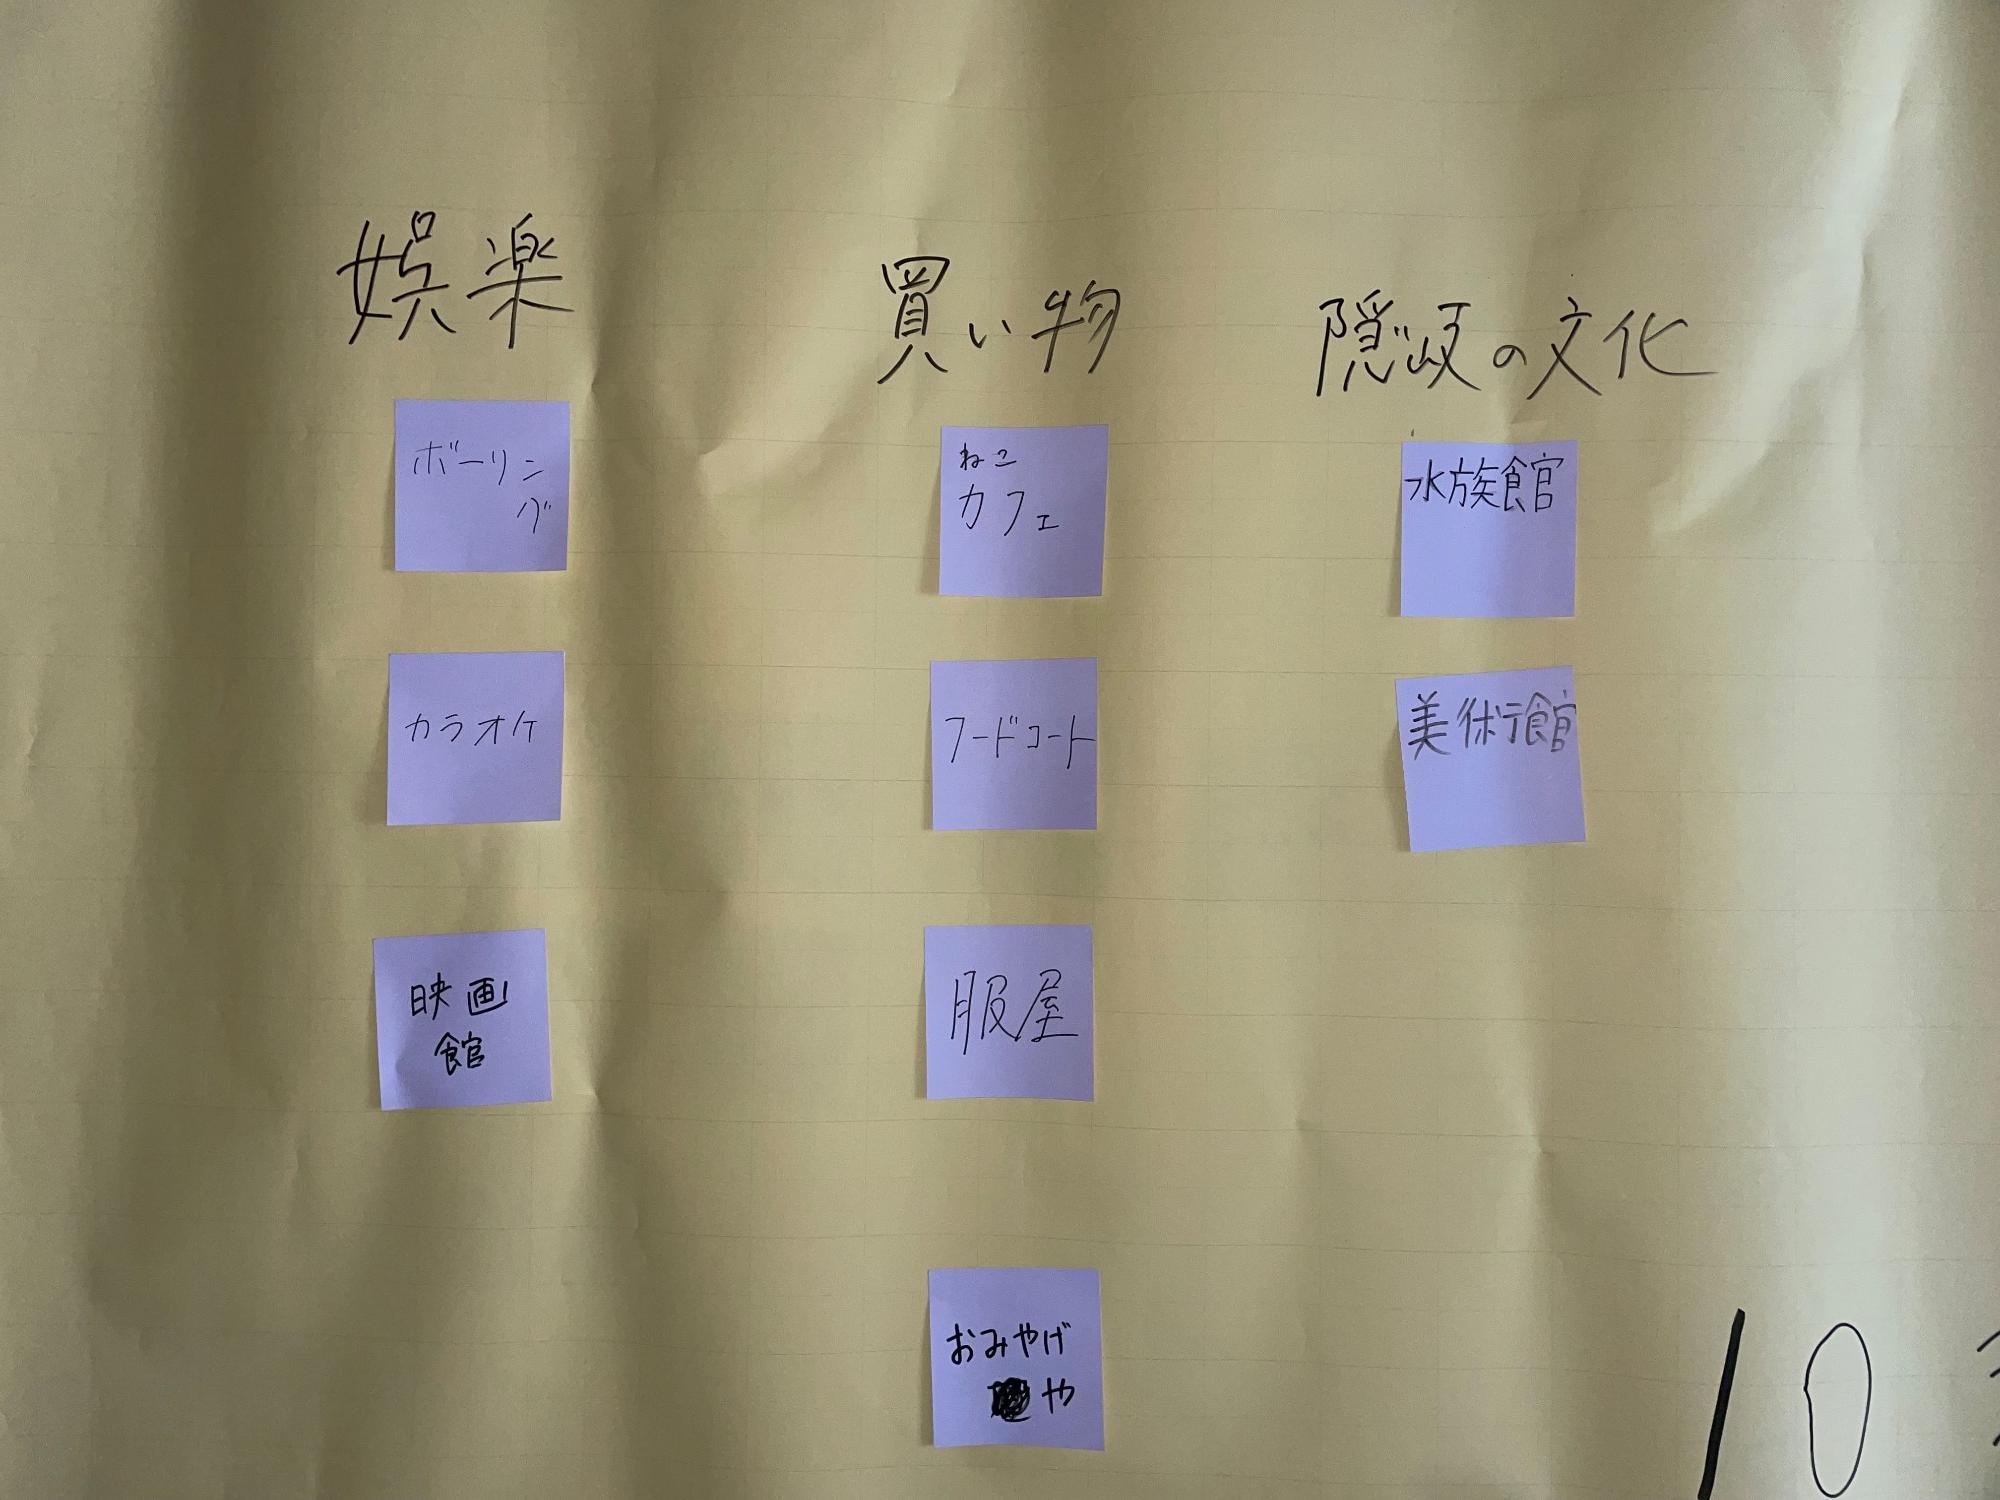 娯楽
ボーリン
グ
カラオケ
映画
館
買い物
ねこ
カフェ
フードコート
服屋
おみやげ
や
隠岐の文化
水族館
美術館
10